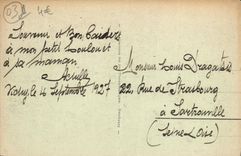 03
4€
Souvenir et Bon Baiser
à mon petit Loulou et
à sa maman
Vichy le 4 Septembre 1927
Monsieur Louis
22, Rue de Strasbourg
à Sartrouville
(Seine & Oise)